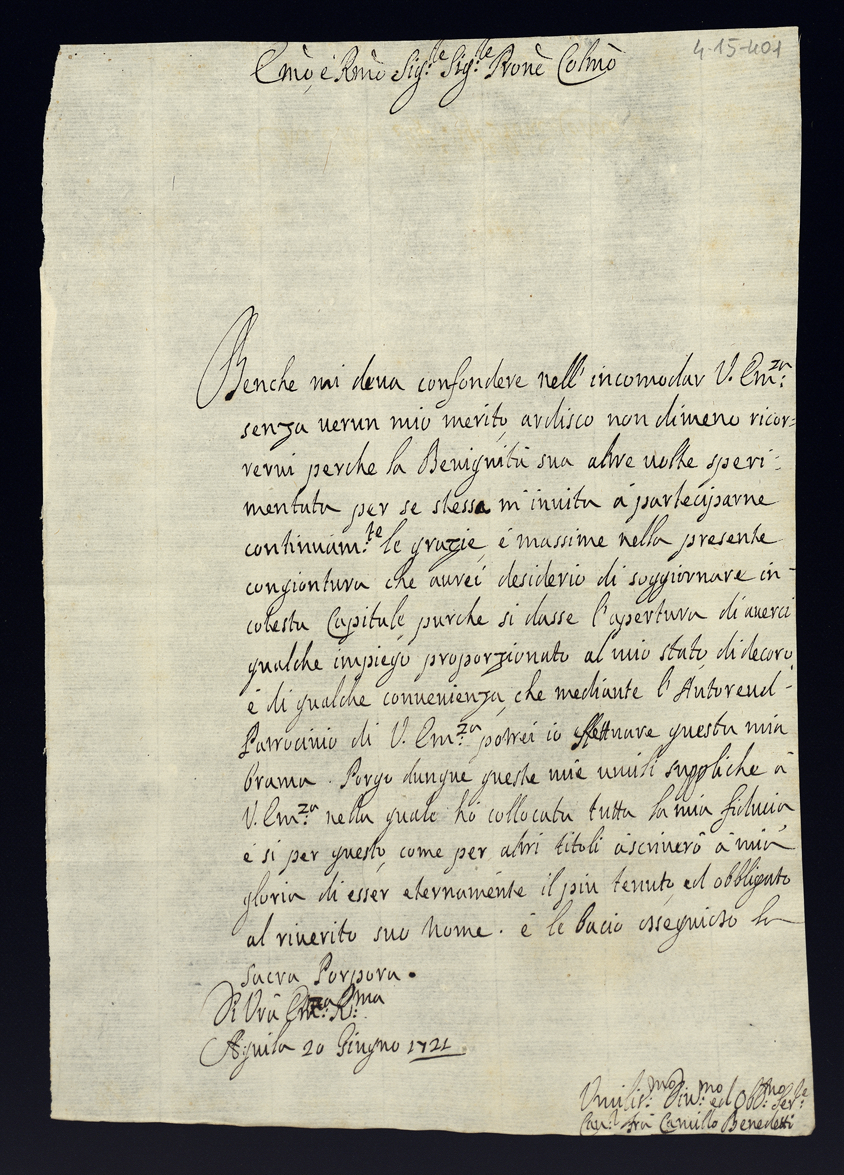 4-15-401
Emõ, é Rmõ Sig.le Sig.le Pronẽ Colmõ
Benche mi deva confondere nell' incomodar V. Em.za
senza uerun mio merito, ardisco non dimeno ricor-
rerui perche la Benignità sua altre uolte speri-
mentata per se stessa m'inuita à participarne
continuam.te le grazie, é massime nella presente
congiontura che aurei desiderio di soggiornare in
cotesta Capitale, purche si dasse l'apertura di auerci
qualche impiego proporzionato al mio stato, di decoro
é di qualche conuenienza, che mediante l'Autoreuol-
Patrocinio di V. Em.za potrei io effettuare questa mia
brama. Porgo dunque queste mie umili suppliche à
V. Em.za nella quale hò collocata tutta la mia fiducia
é si per questo, come per altri titoli ascriuerò à mia
gloria di esser eternamente il piu tenuto, ed obbligato
al riuerito suo Nome. é le bacio ossequioso la
sacra Porpora.
Di Vrã Em.za R.ma
Aquila 20 Giugno 1721
Umilis.mo Diu.mo ed Obb.mo Ser.le
Cau. frà Camillo Benedetti